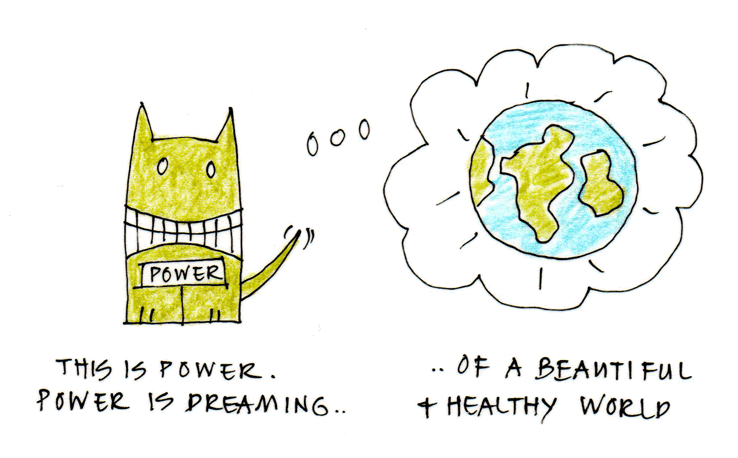 POWER
THIS IS POWER.
POWER IS DREAMING..
..OF A BEAUTIFUL
+ HEALTHY WORLD